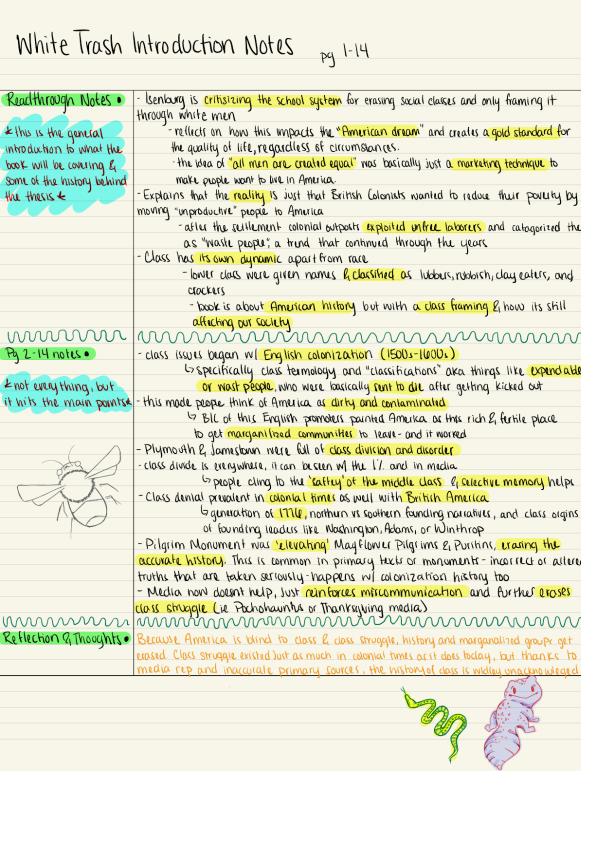 White Trash Introduction Notes pg 1-14
Readthrough Notes •
* this is the general
introduction to what the
book will be covering &
some of the history behind
the thesis *
- Isenburg is critisizing the school system for erasing social classes and only framing it
through white men
- reflects on how this impacts the "American dream" and creates a gold standard for
the quality of life, regardless of circumstances.
- the idea of "all men are created equal" was basically just a marketing technique to
make people want to live in America
- Explains that the reality is just that British Colonists wanted to reduce their poverty by
moving "unproductive" people to America
- after the settlement colonial outposts exploited unfree laborers and catagorized the
as "waste people", a trend that continued through the years
- Class has its own dynamic apart from race
- lower class were given names & classified as lubbers, rubbish, clay eaters, and
crackers
- book is about American history but with a class framing & how its still
affecting our society
Pg 2-14 notes •
* not everything, but
it hits the main points *
- class issues began w/ English colonization (1500s-1600s)
↳ specifically class termology and "classifications" aka things like expendable
or wast people, who were basically sent to die after getting kicked out
- this made people think of America as dirty and contaminated
↳ B/C of this English promoters painted America as this rich & fertile place
to get marganilized communities to leave- and it worked
- Plymouth & Jamestown were full of class division and disorder
- class divide is everywhere, it can be seen w/ the 1% and in media
↳ people cling to the 'saftey' of the middle class & selective memory helps
- Class denial prevalent in colonial times as well with British America
↳ generation of 1776, northern vs southern founding narratives, and class origins
of founding leaders like Washington, Adams, or Winthrop
- Pilgrim Monument was 'elevating' Mayflower Pilgrims & Puritins, erasing the
accurate history. This is common in primary texts or monuments- incorrect or altere
truths that are taken seriously- happens w/ colonization history too
- Media now doesnt help, just reinforces miscommunication and further erases
class struggle (ie Pochohauntus or Thanksgiving media)
Reflection & Thoughts •
Because America is blind to class & class struggle, history and marganalized groups get
erased. Class struggle existed just as much in colonial times as it does today, but thanks to
media rep and inaccurate primary sources, the history of class is widley unacknowleged